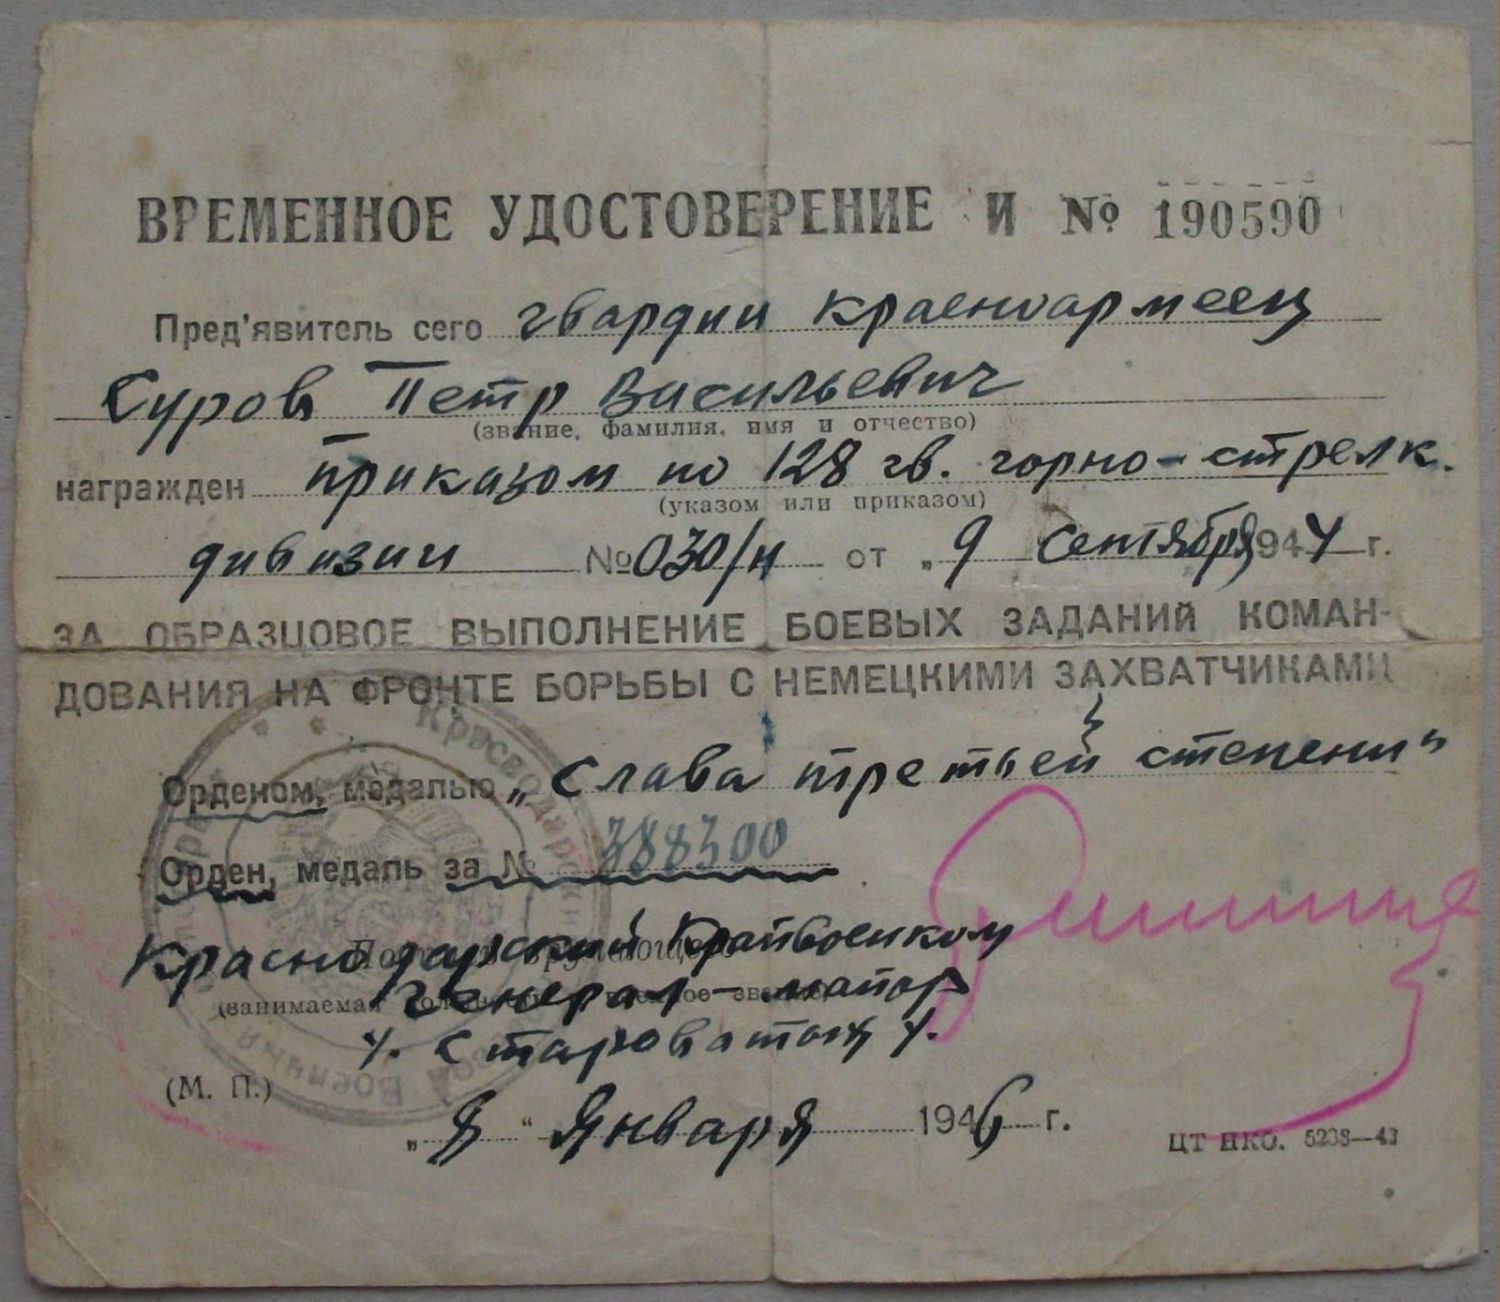 ВРЕМЕННОЕ УДОСТОВЕРЕНИЕ И № 190590
Пред'явитель сего гвардии красноармеец
Суров Петр Васильевич
(звание, фамилия, имя и отчество)
награжден приказом по 128 гв. горно-стрелк.
(указом или приказом)
дивизии № 030/н от „9 сентября 1944 г.
ЗА ОБРАЗЦОВОЕ ВЫПОЛНЕНИЕ БОЕВЫХ ЗАДАНИЙ КОМАН-
ДОВАНИЯ НА ФРОНТЕ БОРЬБЫ С НЕМЕЦКИМИ ЗАХВАТЧИКАМИ
Орденом, медалью „Слава третьей степени"
Орден, медаль за № 388300
Краснодарский Крайвоенком
генерал-майор
(занимаемая
(М. П.)
„8" Января 1946 г.
ЦТ НКО.